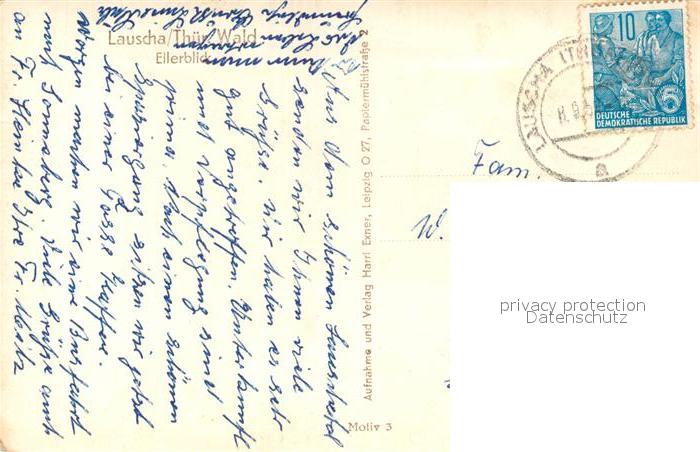 Lauscha/Thür. Wald
Ellerblick
Aus dem schönen Lauschatal
senden wir Ihnen viele
Grüße. Wir haben es sehr
gut angetroffen. Unterkunft
und Verpflegung sind
prima. Nach einem schönen
Spaziergang sitzen wir jetzt
bei einer Tasse Kaffee.
Morgen machen wir eine Busfahrt
nach Sonneberg. Viele Grüße auch
an Fr.
Aufnahme und Verlag Harri Exner, Leipzig O 27, Papiermühlstraße 2
Motiv 3
10
5
DEUTSCHE
DEMOKRATISCHE REPUBLIK
LAUSCHA (THÜR
a
Fam.
W.
privacy protection
Datenschutz